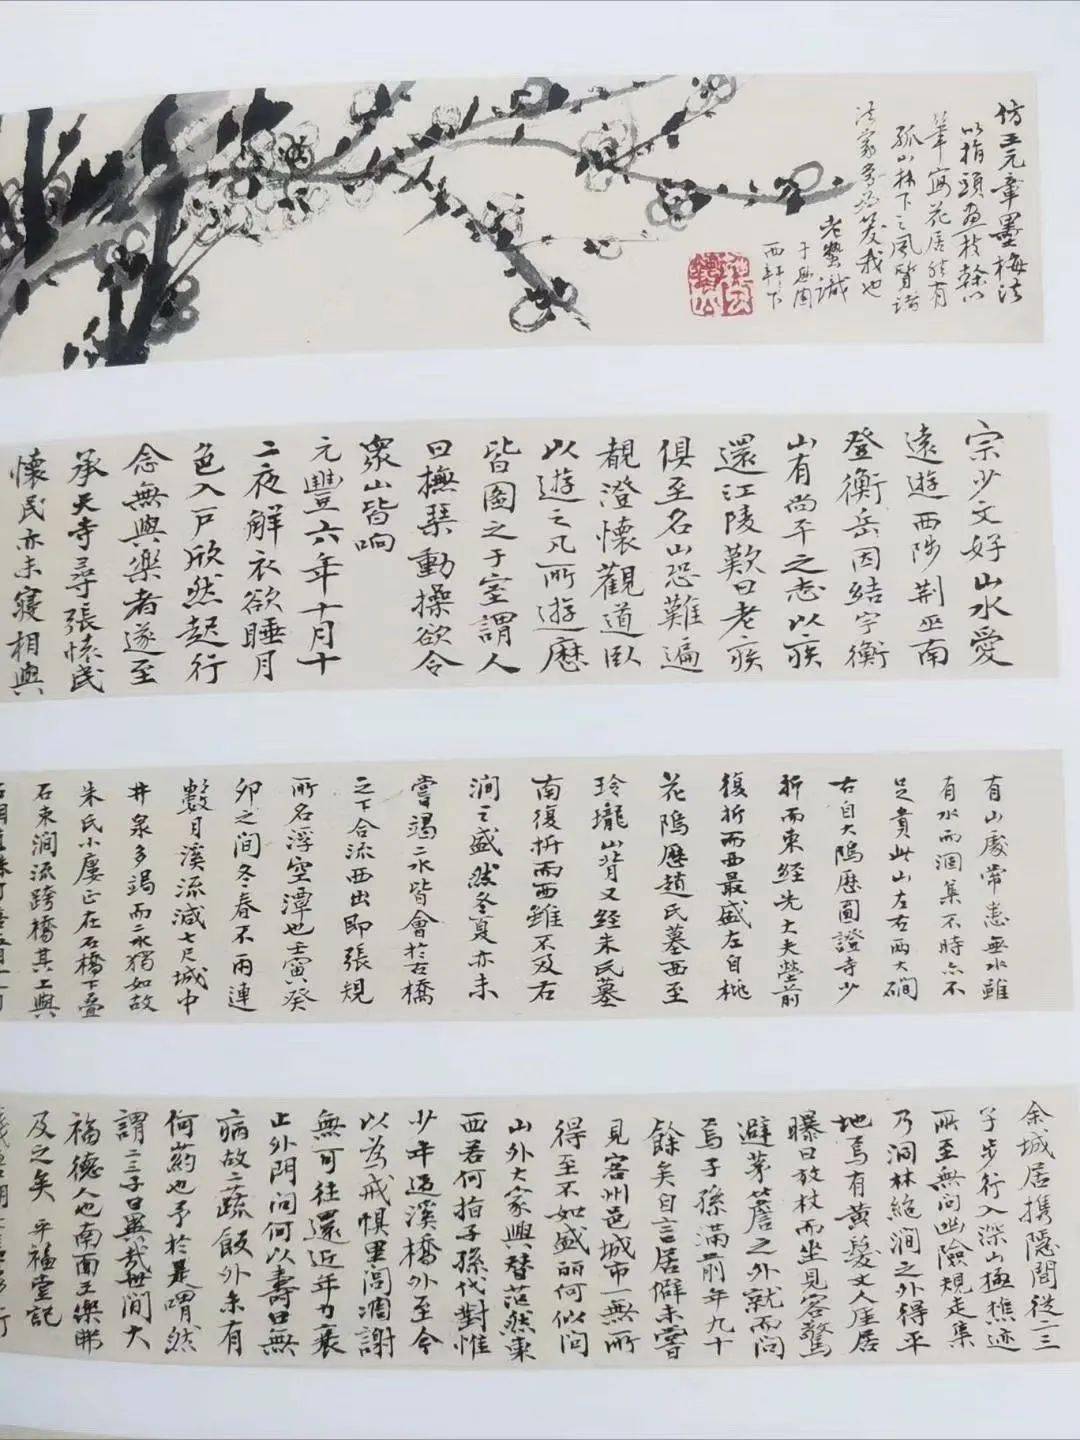 仿王元章墨梅法
以指頭畫枝榦以
筆寫花居然有
孤山林下之風質諸
法家多為笑我也
老蟄識
西軒下
宗少文好山水愛
遠遊西陟荆巫南
登衡岳因結宇衡
山有尚平之志以疾
還江陵歎曰老疾
俱至名山恐難遍
覩澄懷觀道臥
以遊之凡所遊歷
皆圖之于室謂人
曰撫琴動操欲令
衆山皆响
元豐六年十月十
二夜解衣欲睡月
色入戶欣然起行
念無與樂者遂至
承天寺尋張懷民
懷民亦未寢相與
有山處常患無水雖
有水而涸集不時亦不
足貴此山左右兩大磵
右自大隖歷圓證寺少
折而東經先大夫塋前
復折而西最盛左自桃
花隖歷趙氏墓西至
玲瓏山背又經朱氏墓
南復折而西雖不及右
澗之盛然冬夏亦未
嘗竭二水皆會於石橋
之下合流西出即張規
所名浮空潭也壬寅癸
卯之間冬春不雨連
數月溪流減七尺城中
井泉多竭而二水獨如故
朱氏小廔正在石橋下疊
石束澗流跨橋其上與
余城居携隱閒從二三
子步行入深山極樵迹
所至無問幽險規走集
乃洞林絶澗之外得平
地焉有黃髮丈人厓居
曝日放杖而坐見客驚
避茅簷之外就而問
焉子孫滿前年九十
餘矣自言居僻未嘗
見客州邑城市一無所
得至不如盛麗何似問
山外大家興替茫然東
西若何指子孫代對惟
少年過溪橋外至今
以為戒惧里閭凋謝
無可往還近年力衰
止外門問何以壽曰無
病故二疏飯外未有
何葯也予於是喟然
謂二三子曰異哉世間大
福德人也南面王樂弗
及之矣 平福堂記